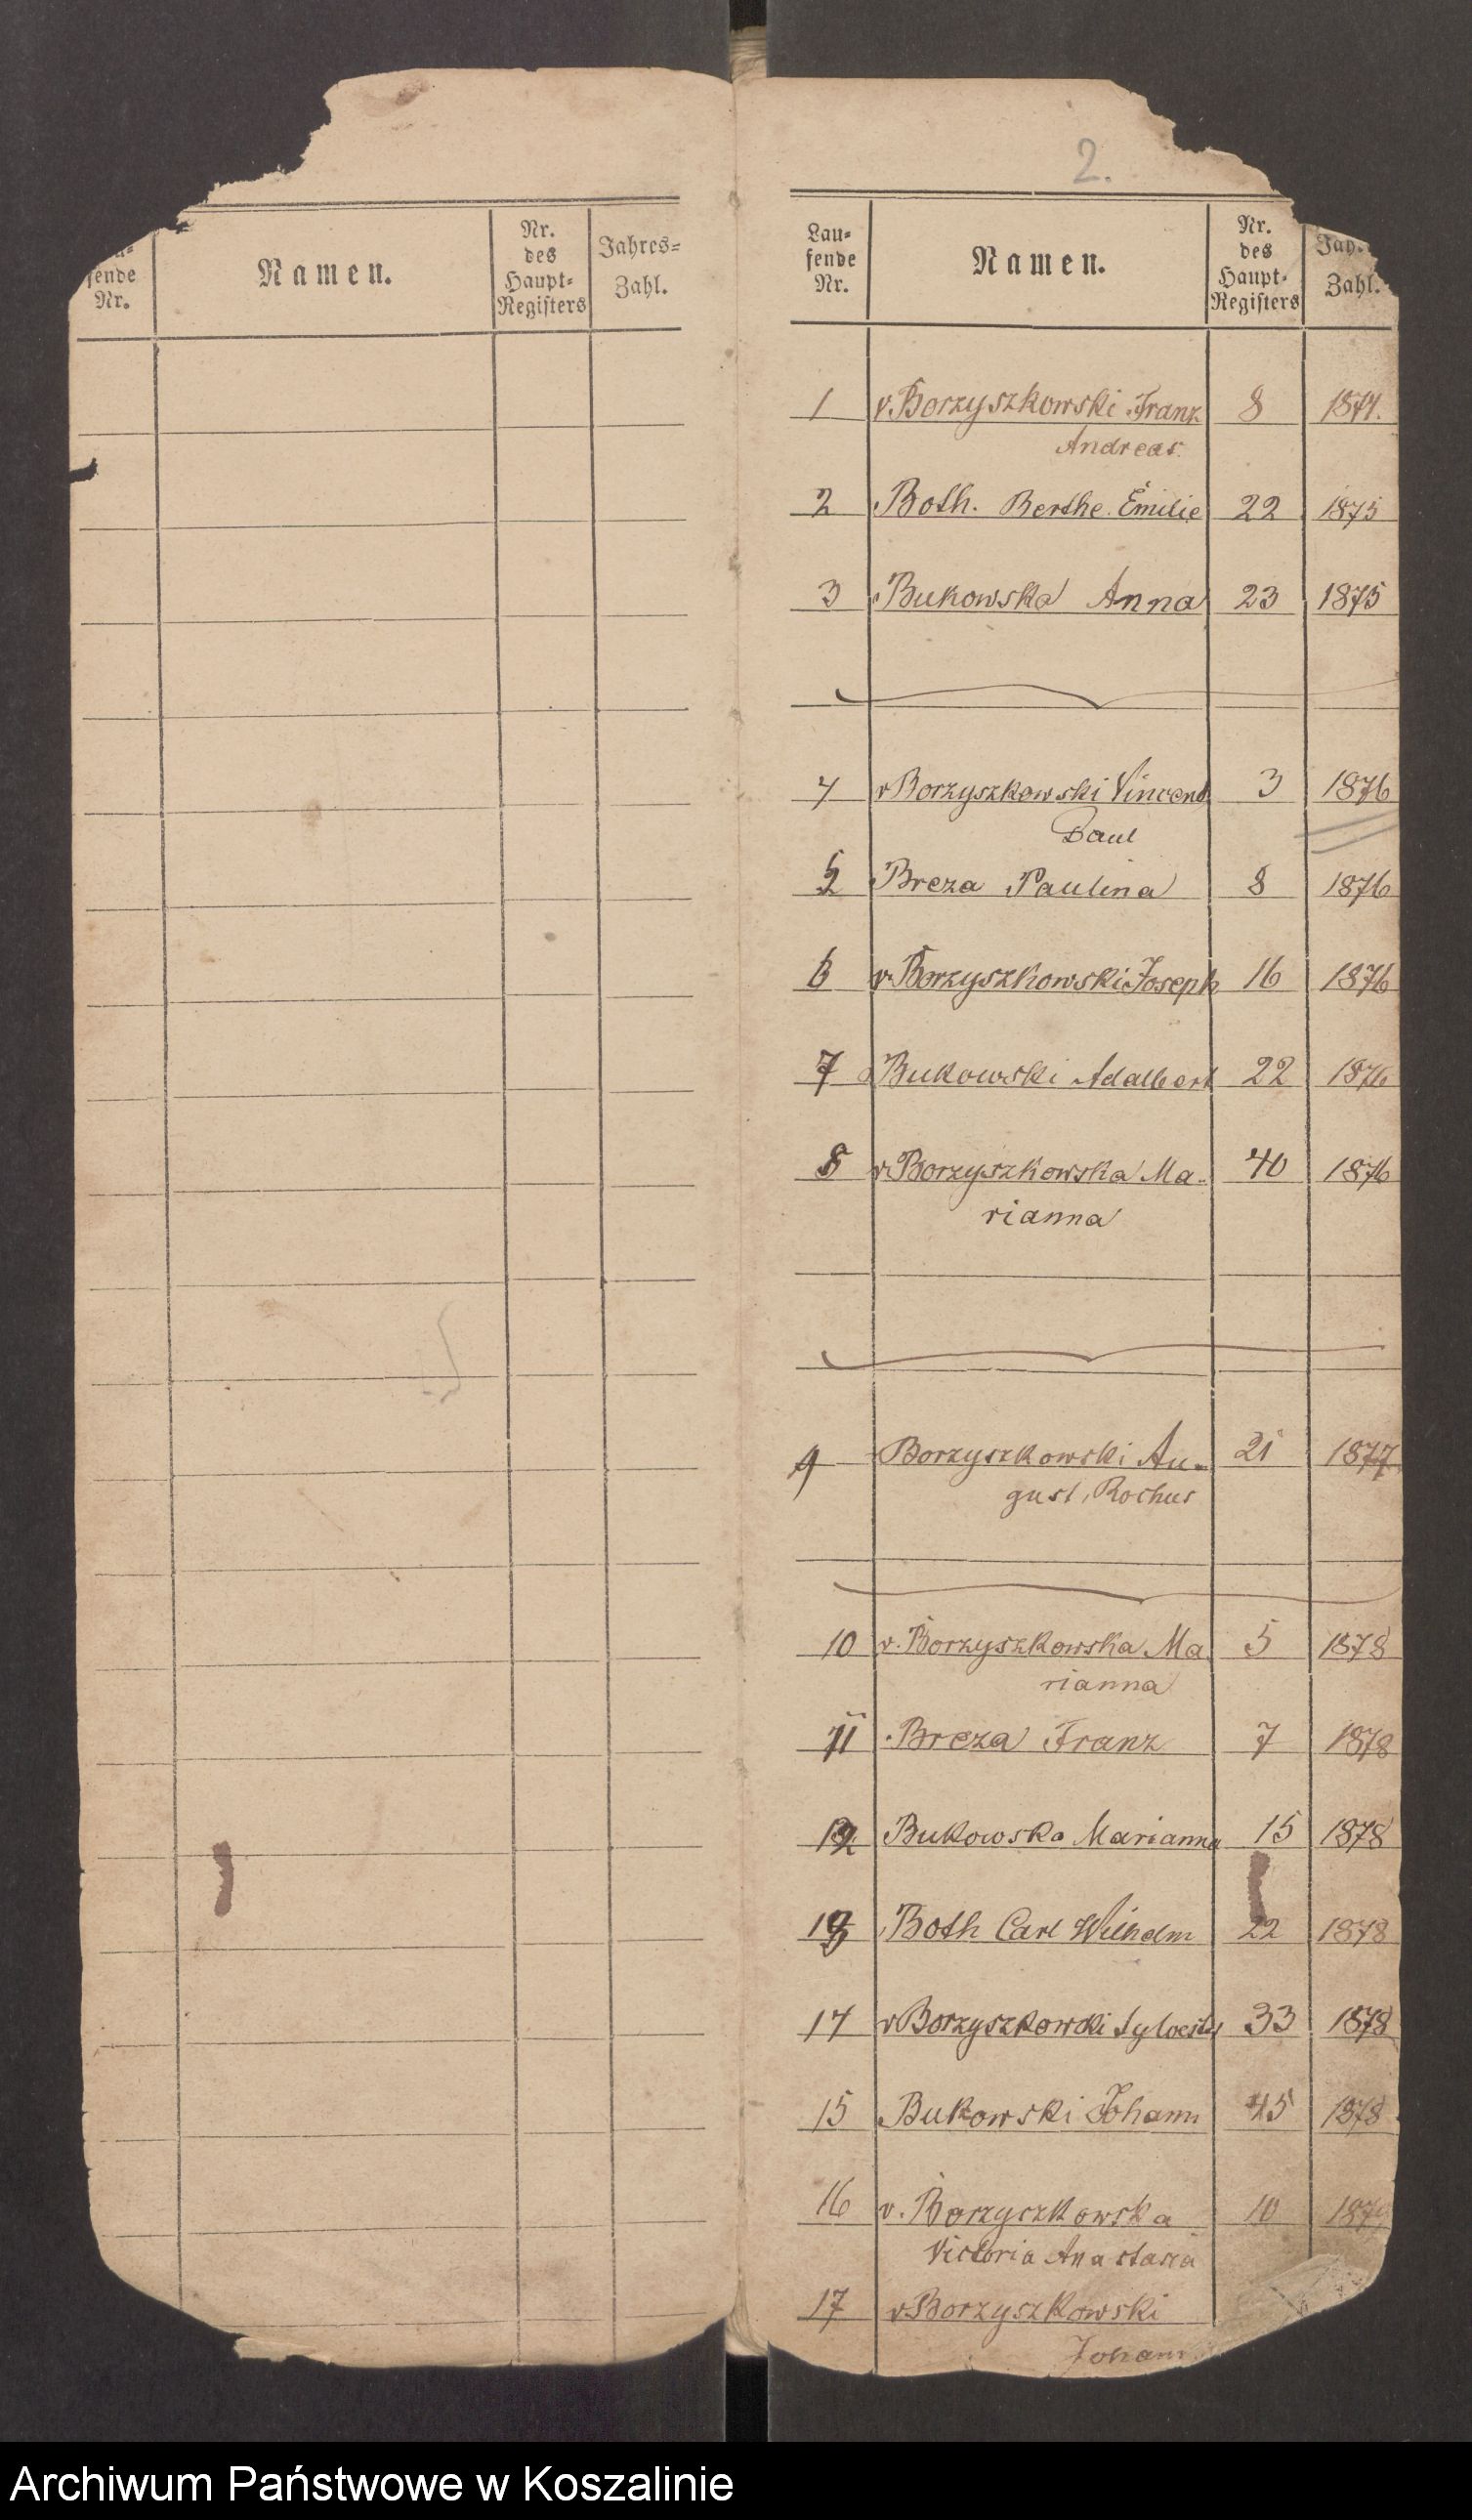 fende
Nr.
Namen.
Nr.
des
Haupt-
Registers
Jahres-
Zahl.
2.
Lau-
fende
Nr.
Namen.
Nr.
des
Haupt-
Registers
Zahl.
1 v. Borzyszkowski Franz 8 1874.
Andreas.
2 Both. Berthe. Emilie 22 1875
3 Bukowska Anna 23 1875
4 v Borzyszkowski Vincent 3 1876
Paul
5 Breza Paulina 8 1876
6 v. Borzyszkowski Joseph 16 1876
7 Bukowski Adalbert 22 1876
8 v. Borzyszkowska Ma-
rianna 40 1876
9 Borzyszkowski Au- 21 1877
gust, Rochus
10 v. Borzyszkowska Ma 5 1878
rianna
11 Breza Franz 7 1878
12 Bukowska Marianna 15 1878
13 Both Carl Wilhelm 22 1878
14 v Borzyszkowski Sylvester 33 1878
15 Bukowski Johann 45 1878
16 v. Borzyszkowska 10 1879
Victoria Anastasia
17 v Borzyszkowski
Johann
Archiwum Państwowe w Koszalinie